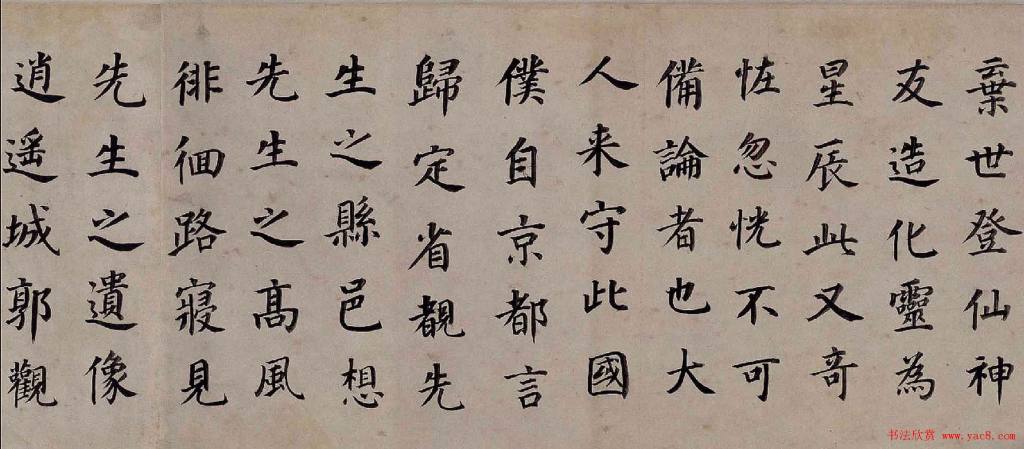 棄世登仙神
友造化靈為
星辰此又竒
怪忽恍不可
備論者也大
人来守此國
僕自京都言
歸定省覩先
生之縣邑想
先生之髙風
徘徊路寢見
先生之遺像
逍遥城郭觀
书法欣赏 www.yac8.com